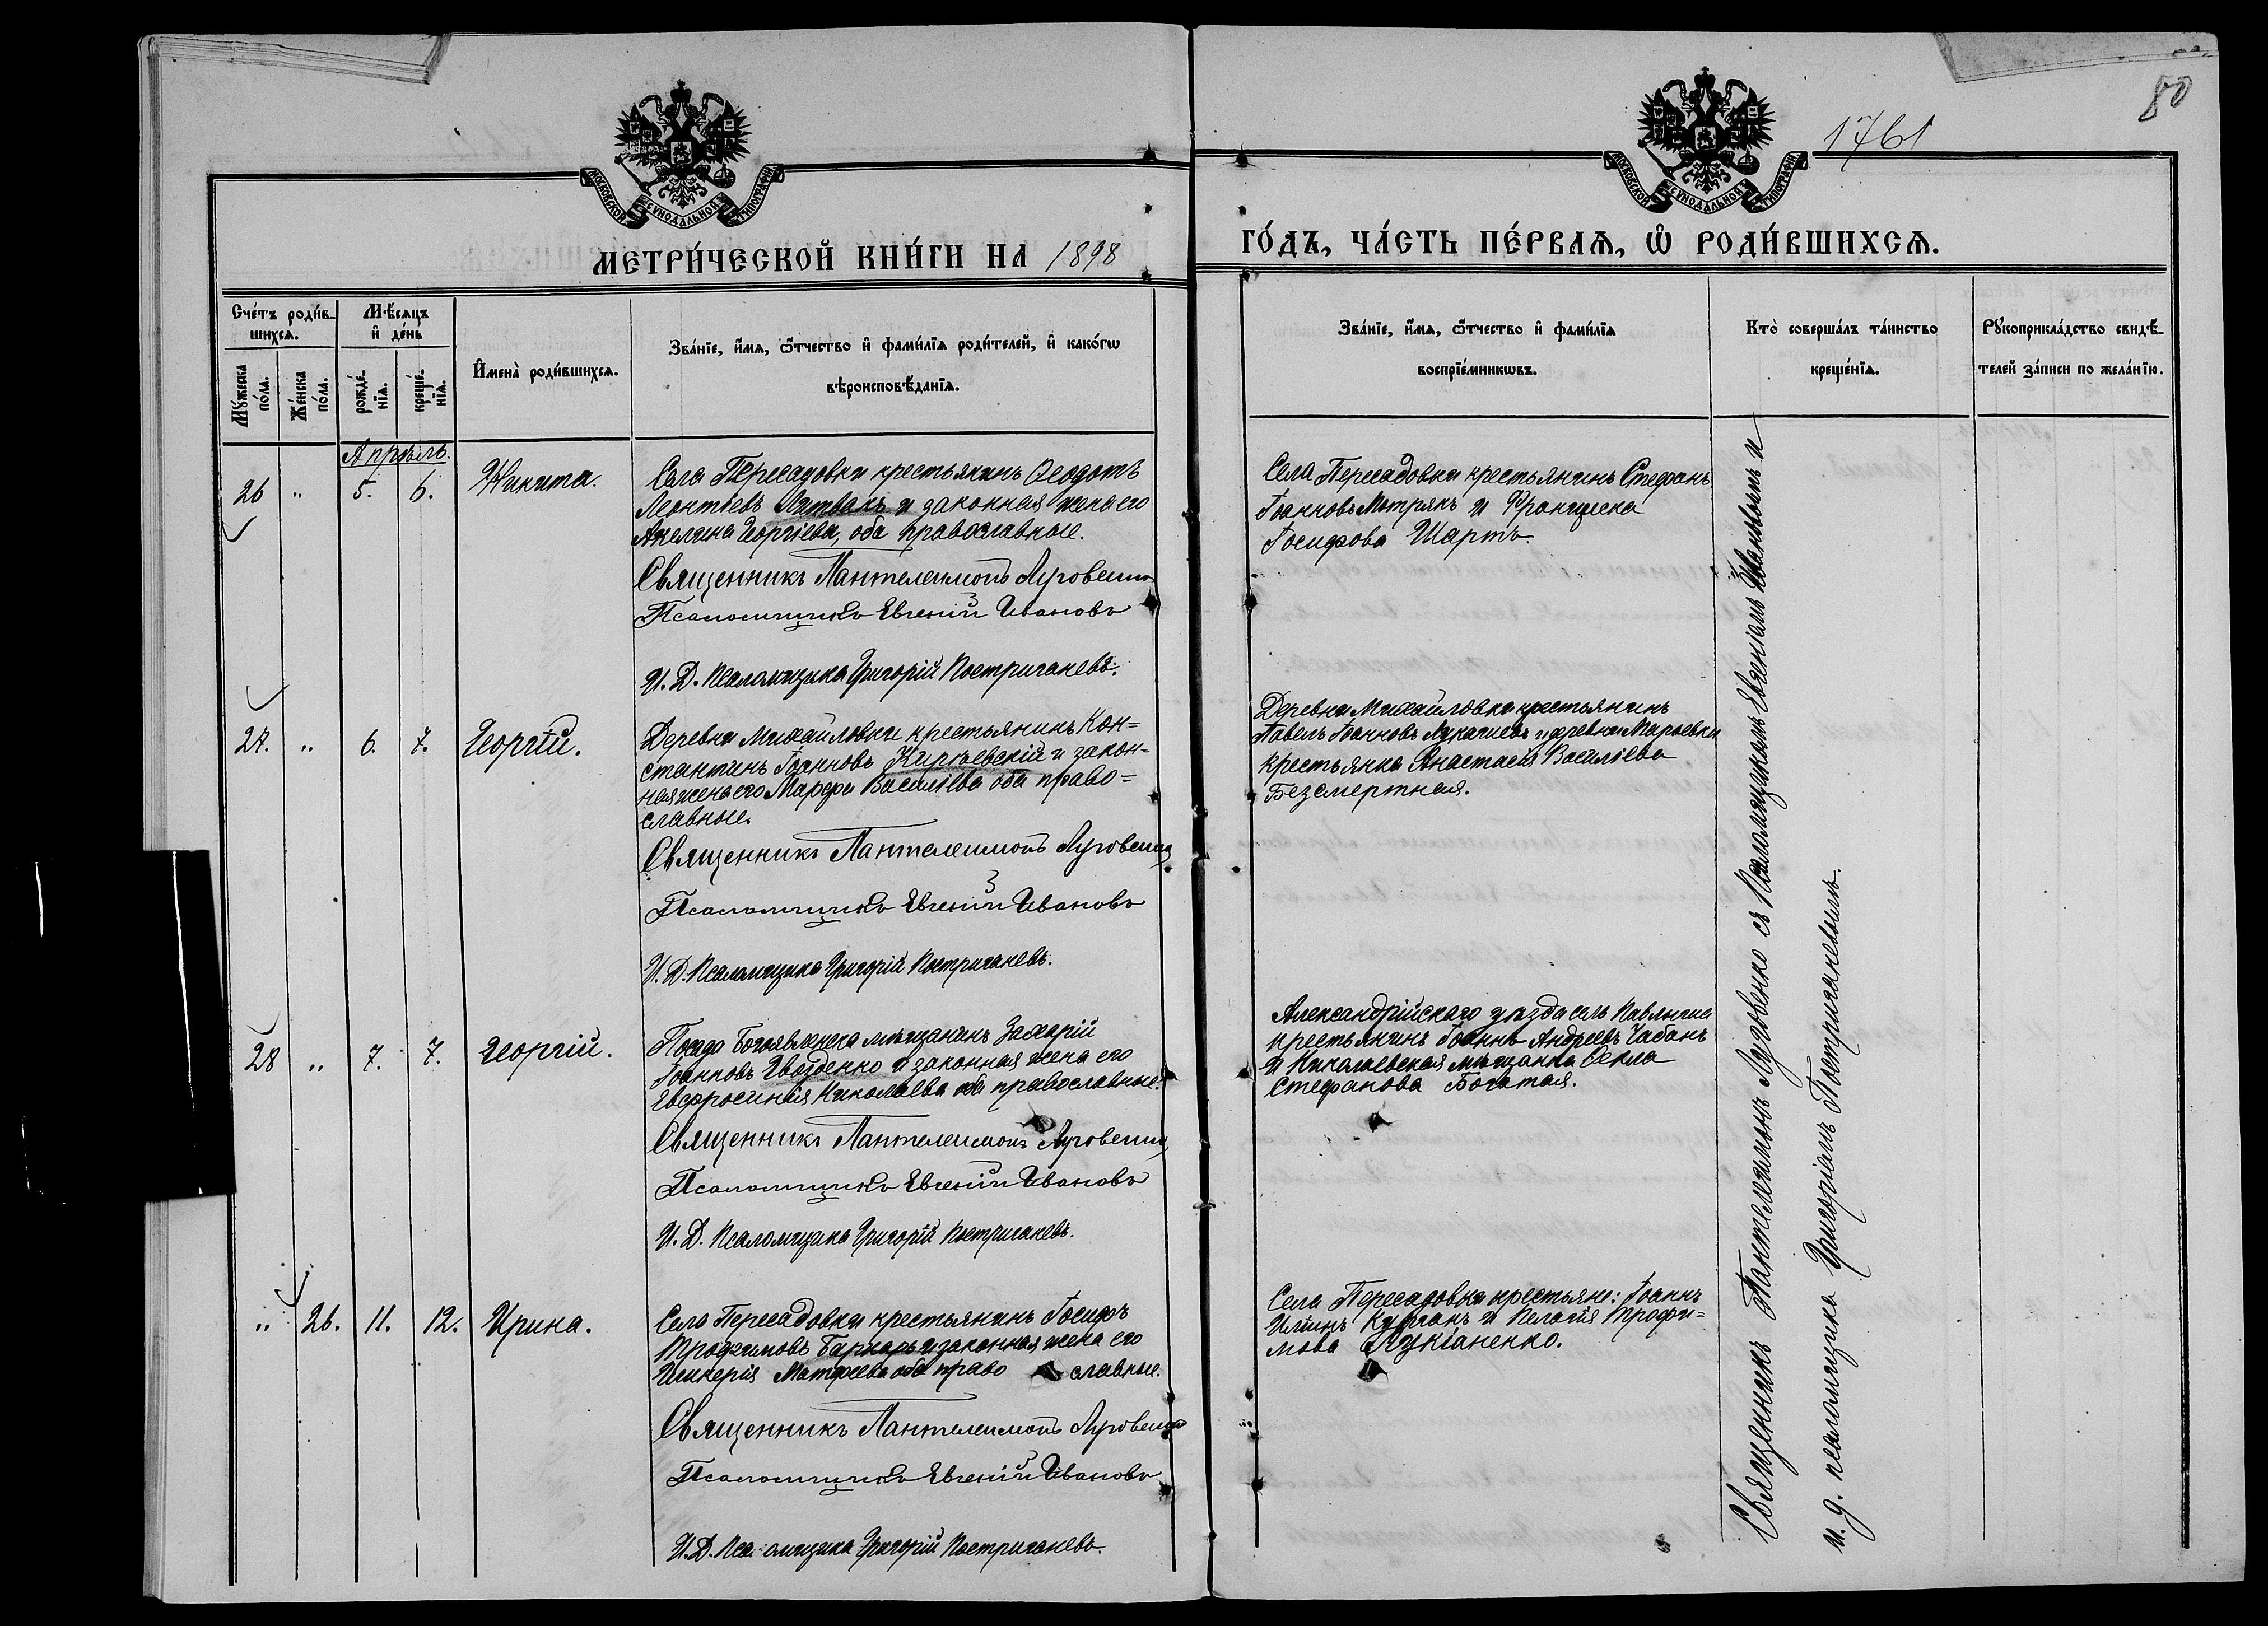 80
1761
МОСКОВСКОЙ СѴНОДАЛЬНОЙ ТИПОГРАФІИ
МОСКОВСКОЙ СѴНОДАЛЬНОЙ ТИПОГРАФІИ
МЕТРИ́ЧЕСКОЙ КНИ́ГИ НА 1898
ГО́ДЪ, ЧА́СТЬ ПЕ́РВАѦ, Ѡ҆ РОДИ́ВШИХСѦ.
Сче́тъ роди́в-
шихсѧ.
Мꙋ́жеска
по́ла.
Же́нска
по́ла.
Мѣ́сѧцъ
и҆ де́нь
рожде́-
нїѧ.
креще́-
нїѧ.
И҆мена̀ роди́вшихсѧ.
Зва́нїе, и҆́мѧ, ѻ҆́тчество и҆ фами́лїѧ роди́телей, и҆ како́гѡ
вѣроисповѣ́данїѧ.
Зва́нїе, и҆́мѧ, ѻ҆́тчество и҆ фами́лїѧ
воспрїе́мникѡвъ.
Кто̀ соверша́лъ та́инство
креще́нїѧ.
Рꙋкоприкла́дство свидѣ́-
телей за́писи по жела́нїю.
Апрѣль.
26 " 5. 6. Никита.
Села Пересадовки крестьянинъ Ѳеодотъ
Леонтіевъ Литвакъ и законная жена его
Акелина Георгіева, оба православные.
Священникъ Пантелеимонъ Луговенко
Псаломщикъ Евгеній Ивановъ
И. Д. Псаломщика Григорій Постриганевъ.
Села Пересадовки крестьянинъ Стефанъ
Іоанновъ Мотрякъ и Франциска
Іосифова Шартъ.
27. " 6. 7. Георгій.
Деревни Михайловки крестьянинъ Кон=
стантинъ Іоанновъ Кирѣевскій и закон=
ная жена его Марфа Василіева оба право=
славные.
Священникъ Пантелеимонъ Луговенко
Псаломщикъ Евгеній Ивановъ
И. Д. Псаломщика Григорій Постриганевъ.
Деревни Михайловки крестьянинъ
Павелъ Іоанновъ и деревни Марьевки
крестьянка Анастасія Василіева
Безсмертная.
28 " 7. 7. Георгій.
Посада Богоявленска мѣщанинъ Захарій
Іоанновъ Гвозденко и законная жена его
Евфросинія Николаева оба православные.
Священникъ Пантелеимонъ Луговенко
Псаломщикъ Евгеній Ивановъ
И. Д. Псаломщика Григорій Постриганевъ.
Александрійскаго уѣзда села Павлыша
крестьянинъ Іоаннъ Андреевъ Чабанъ
и Николаевская мѣщанка Ѳекла
Стефанова Богатая.
" 26. 11. 12. Ирина.
Села Пересадовки крестьянинъ Іосифъ
Трофимовъ Барнарь и законная жена его
Гликерія Матфеева оба право славные.
Священникъ Пантелеимонъ Луговенко
Псаломщикъ Евгеній Ивановъ
И. Д. Псаломщика Григорій Постриганевъ.
Села Пересадовки крестьяне: Іоаннъ
Иліинъ Курганъ и Пелагія Трофи=
мова Лукіаненко.
Священникъ Пантелеимонъ Луговенко съ Псаломщикомъ Евгеніемъ Ивановымъ и
и. д. псаломщика Григоріемъ Постриганевымъ.